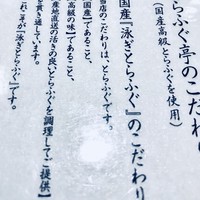 とらふぐ亭のこだわり
（国産高級とらふぐを使用）
国産『泳ぎとらふぐ』のこだわり
当店のこだわりは、とらふぐです。
国産】であること、
高級の味】であること、
産地直送の活きの良いとらふぐを調理してご提供】
を貫き通しています。
れこそが『とらふぐ』です。